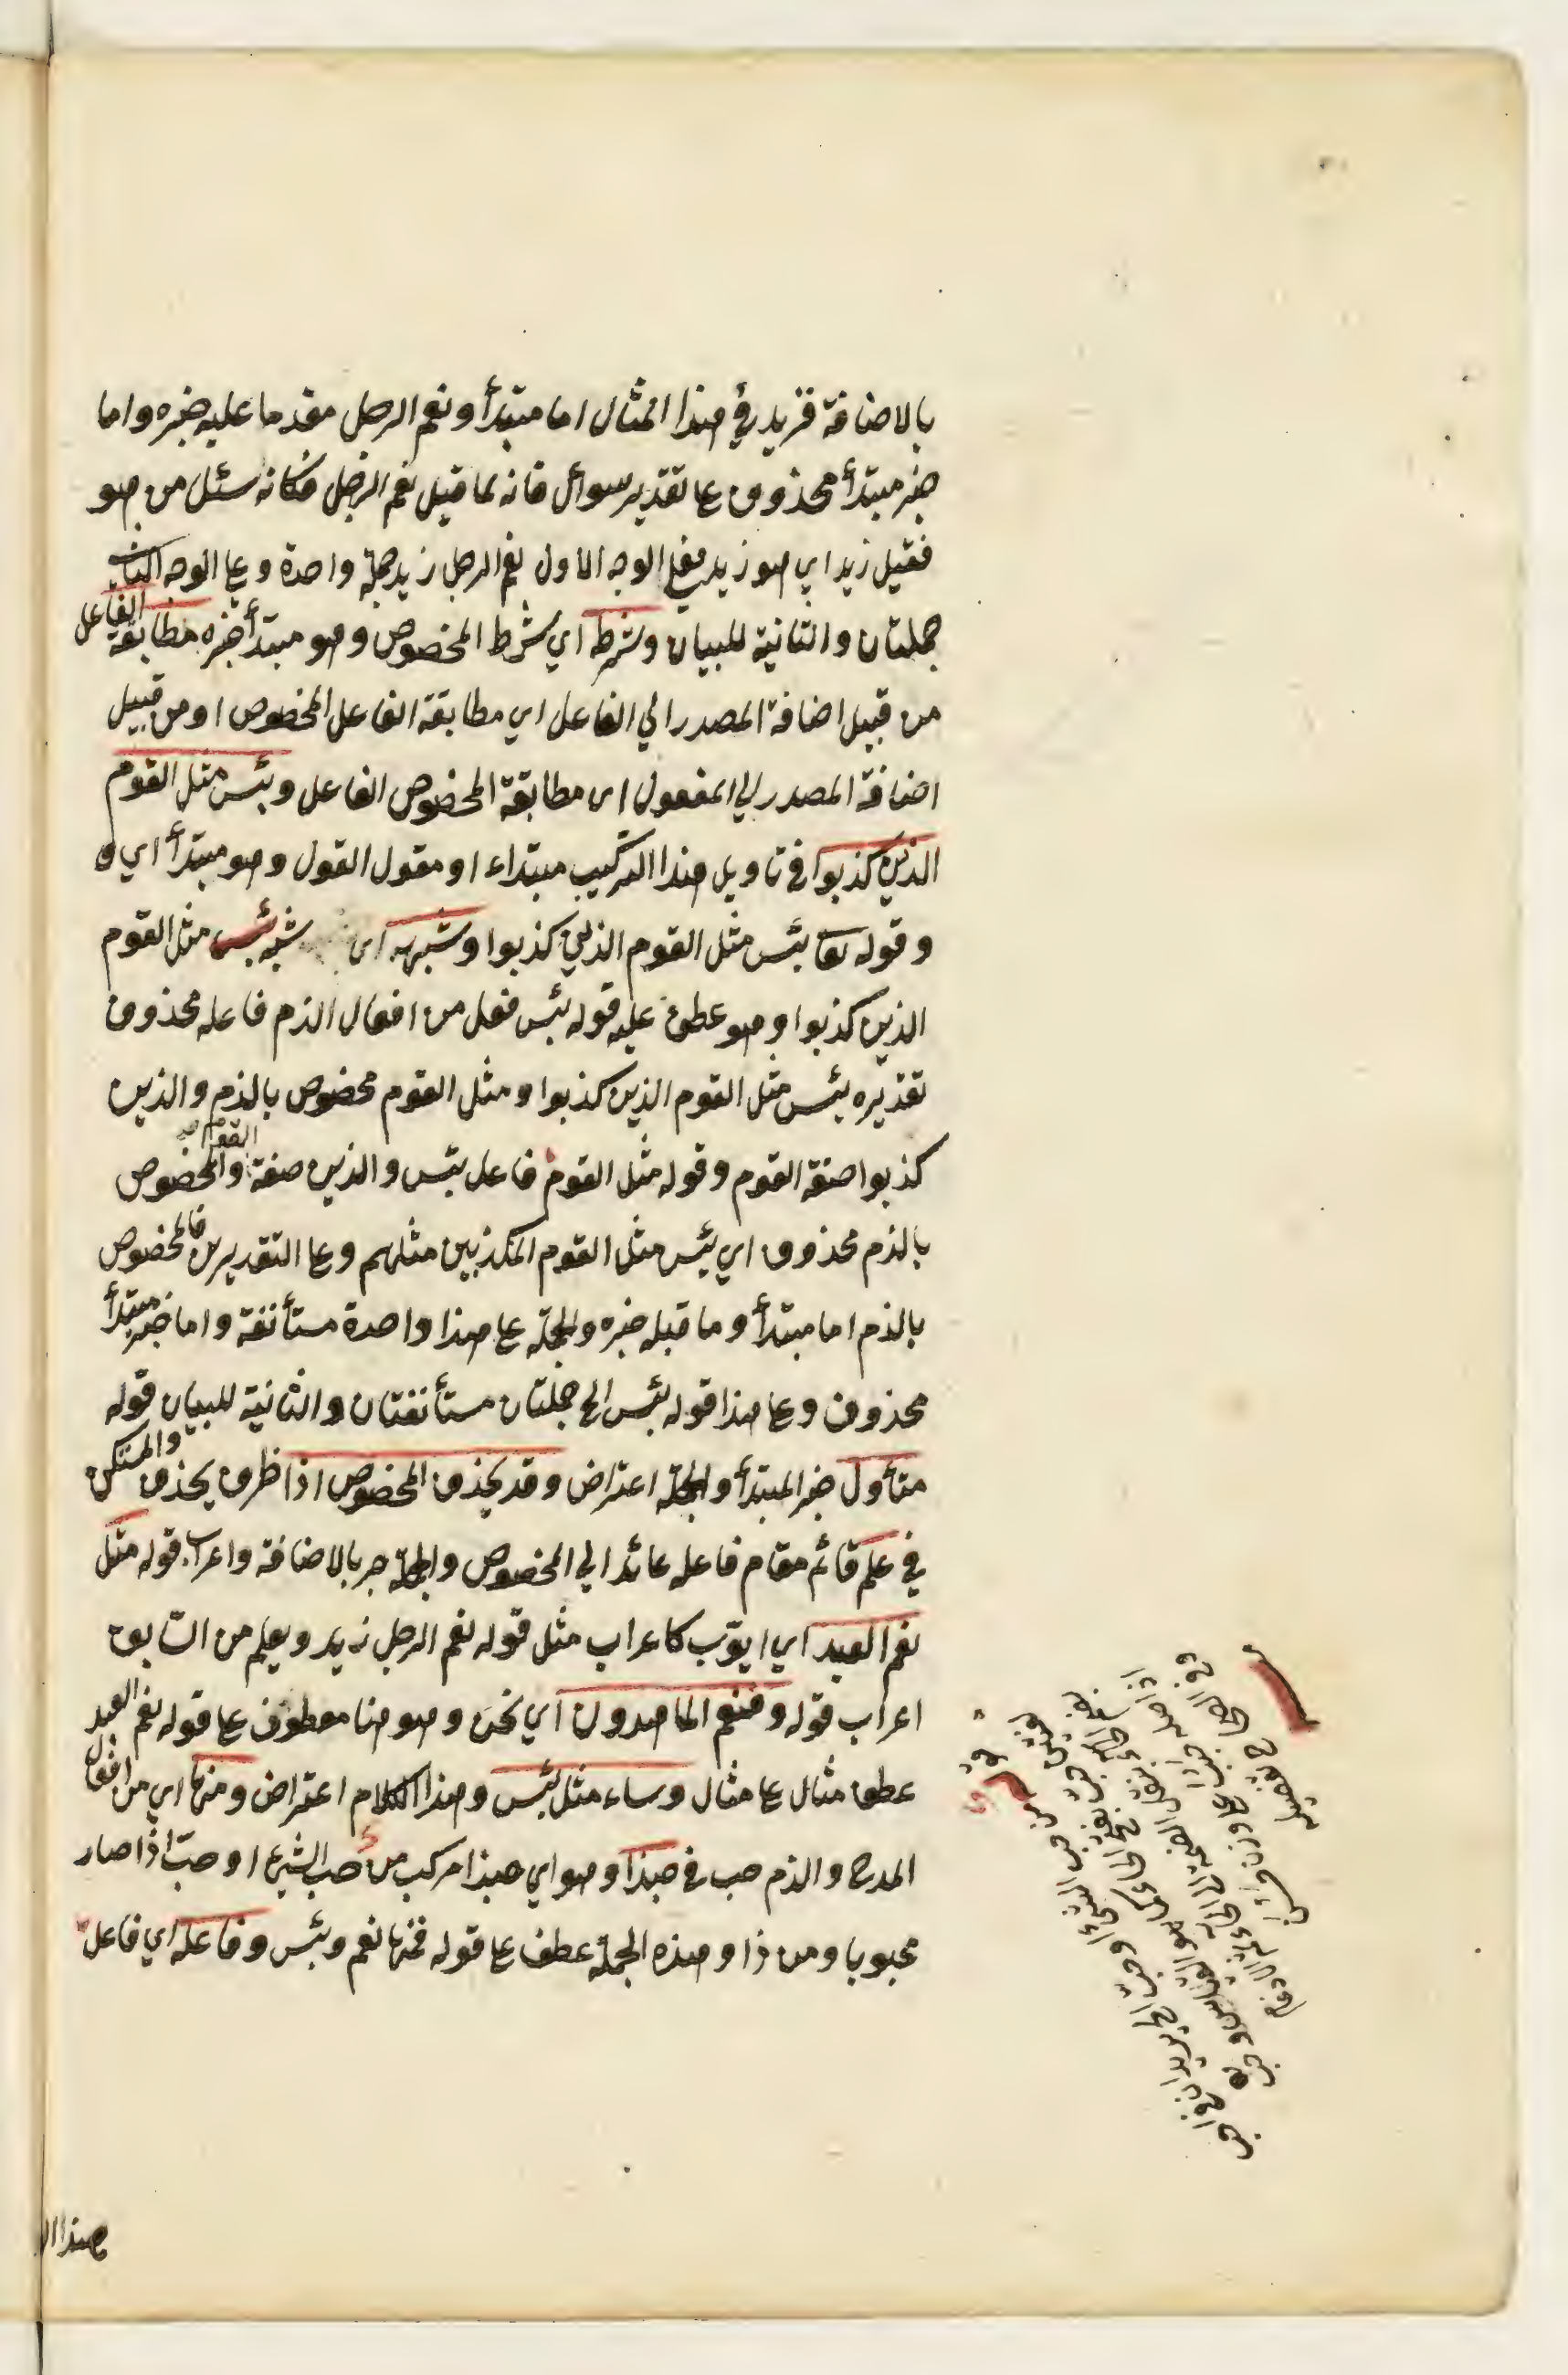 بالاضافة فزيد في هذا المثال اما مبتدأ ونعم الرجل مقدما عليه خبره واما
خبر مبتدأ محذوف علی تقدير سوائل فانه لما قيل نعم الرجل فكانه سئل من هو
فقيل زيد اي هو زيد فعلي الوجه الاول نعم الرجل زيد جملة واحدة وعلی الوجه الثاني
جملتان والثانية للبيان وشرط اي شرط المخصوص وهو مبتدأ خبره مطابقة الفاعل
من قبيل اضافة المصدر الي الفاعل اي مطابقة الفاعل المخصوص او من قبيل
اضافة المصدر الي المفعول ای مطابقة المخصوص الفاعل وبئس مثل القوم
الذين كذبوا في تاويل هذا التركيب مبتداء او مقول القول وهو مبتدأ اي و
وقوله تعا بئس مثل القوم الذين كذبوا وشبهه ای شبه بئس مثل القوم
الذين كذبوا وهو عطف عليه قوله بئس فعل من افعال الذم فاعله محذوف
تقديره بئس مثل القوم الذين كذبوا ومثل القوم مخصوص بالذم والذين
كذبوا صفة القوم وقوله مثل القوم فاعل بئس والذين صفة القوم والمخصوص
بالذم محذوف اي بئس مثل القوم المكذبين مثلهم وعلی التقديرين فالمخصوص
بالذم اما مبتدأ وما قبله خبره والجملة علی هذا واحدة مستأنفة واما خبر مبتدأ
محذوف وعلی هذا قوله بئس الخ جملتان مستأنفتان والثانية للبيان قوله
متأول خبر المبتدأ والجملة اعتراض وقد يحذف المخصوص اذا ظرف يحذف والمستكن
في علم قائم مقام فاعله عائد الي المخصوص والجملة جر بالاضافة واعراب قوله مثل
نعم العبد اي ايوّب كاعراب مثل قوله نعم الرجل زيد ويعلم من السّابق
اعراب قوله وفنعم الماهدون اي نحن وهو هنا معطوف علی قوله نعم العبد
عطف مثال علی مثال وساء مثل بئس وهذا الكلام اعتراض ومنها اي من افعال
المدح والذم حب في حبذا وهو اي حبذا مركب من حب الشيء او حبّ اذا صار
محبوبا ومن ذا وهذه الجملة عطف علی قوله فمنها نعم وبئس وفاعله اي فاعل
هذا ال